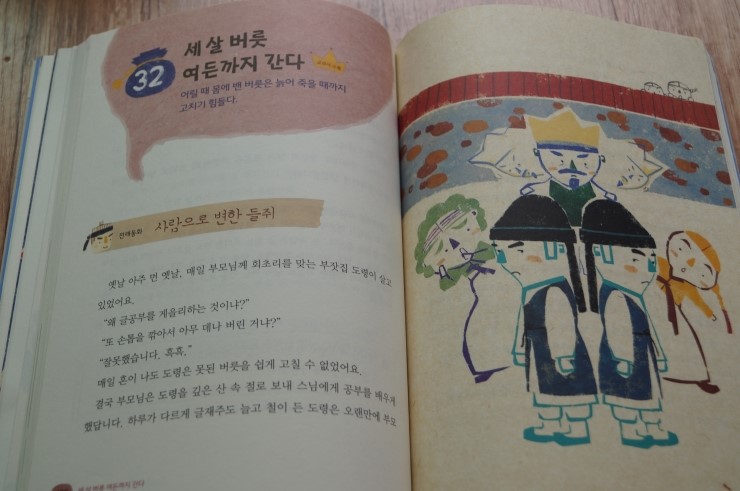 32
세 살 버릇
여든까지 간다
어릴 때 몸에 밴 버릇은 늙어 죽을 때까지
고치기 힘들다.
전래동화 사람으로 변한 들쥐
옛날 아주 먼 옛날, 매일 부모님께 회초리를 맞는 부잣집 도령이 살고
있었어요.
“왜 글공부를 게을리하는 것이냐?”
“또 손톱을 깎아서 아무 데나 버린 거냐?”
“잘못했습니다. 흑흑.”
매일 혼이 나도 도령은 못된 버릇을 쉽게 고칠 수 없었어요.
결국 부모님은 도령을 깊은 산 속 절로 보내 스님에게 공부를 배우게
했답니다. 하루가 다르게 글재주도 늘고 철이 든 도령은 오랜만에 부모
세 살 버릇 여든까지 간다